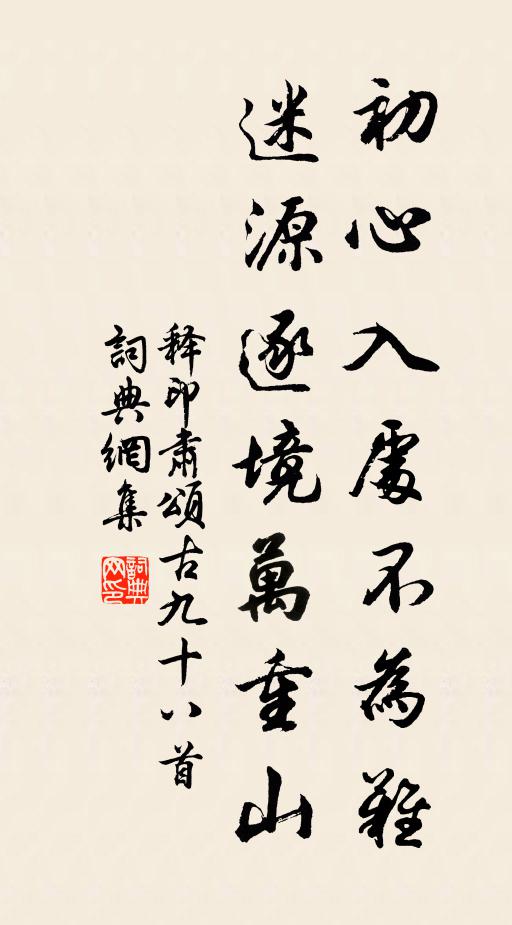 初心入處不為難
迷源逐境萬重山
释印肅頌古九十八首
詞典網集
詞典网印